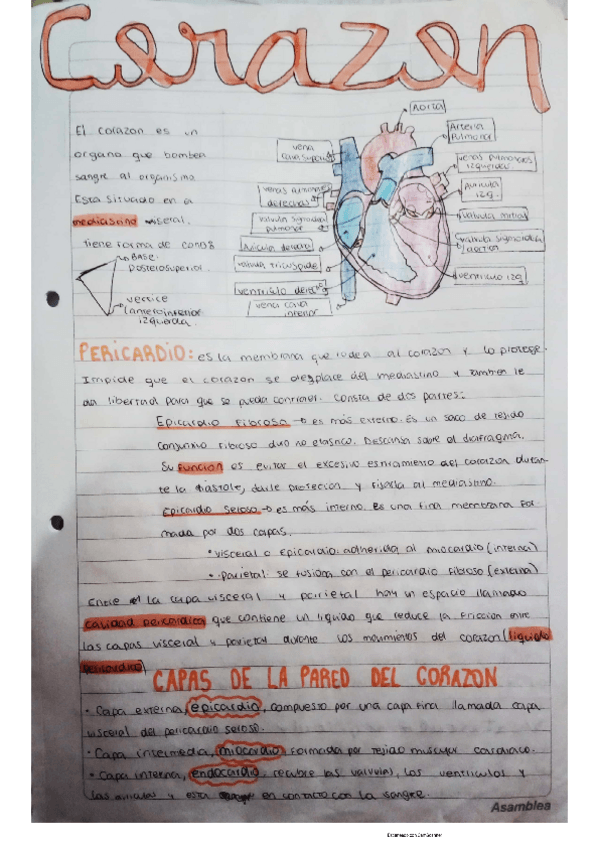 Corazon
El corazon es un
organo que bombea
sangre al organismo
Esta situado en el
mediastino visceral.
Tiene forma de cono
BASE
posterosuperior
vertice
(anteroinferior
izquierda.
Aorta
Arteria
Pulmonar
venas pulmonares
izquierdas
Auricula
izq.
valvula mitral
valvula sigmoidea
aortica
ventriculo izq
vena
cava superior
venas pulmonares
derechas
valvula sigmoidea
pulmonar
Auricula derecha
valvula tricuspide
ventriculo derecho
vena cava
inferior
PERICARDIO: es la membrana que rodea al corazon y lo protege.
Impide que el corazon se desplace del mediastino y tambien le
da libertad para que se pueda contraer. consta de dos partes:
Epicardio Fibroso → es más externo. Es un saco de tejido
conjuntivo fibroso duro no elastico. Descansa sobre el diafragma.
Su funcion es evitar el excesivo estiramiento del corazon duran-
te la diástole, darle proteccion y fijarla al mediastino.
Epicardio seroso → es más interno. es una fina membrana for-
mada por dos capas.
• visceral o Epicardio: adherida al miocardio (interna)
• parietal: se fusiona con el pericardio fibroso (externa)
Entre la capa visceral y parietal hay un espacio llamado
cavidad pericardica que contiene un liquido que reduce la friccion entre
las capas visceral y parietal durante los movimientos del corazon (liquido
pericardico)
CAPAS DE LA PARED DEL CORAZON
• Capa externa, epicardio, compuesto por una capa fina llamada capa
visceral del pericardio seroso.
• Capa intermedia, miocardio formada por tejido muscular cardiaco.
• Capa interna, endocardio, recubre las valvulas, los ventriculos y
las auriculas y esta en contacto con la sangre.
Asamblea
Escaneado con CamScanner